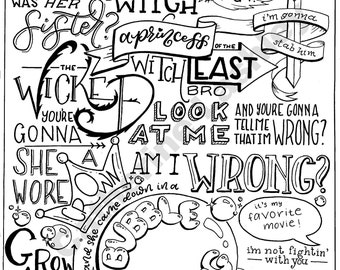 WAS HER
SISTER?
WITCH
A PRINCESS
i'm gonna
stab him
THE
WICKED
WITCH
OF THE
EAST
BRO
YOU'RE
GONNA
LOOK
AT ME
AND YOU'RE GONNA
TELL ME
THAT IM WRONG?
AM I
WRONG?
SHE
WORE
A
CROWN
and she came down in a
BUBBLE
GROW
it's my
favorite
movie!
im not fightin'
with you